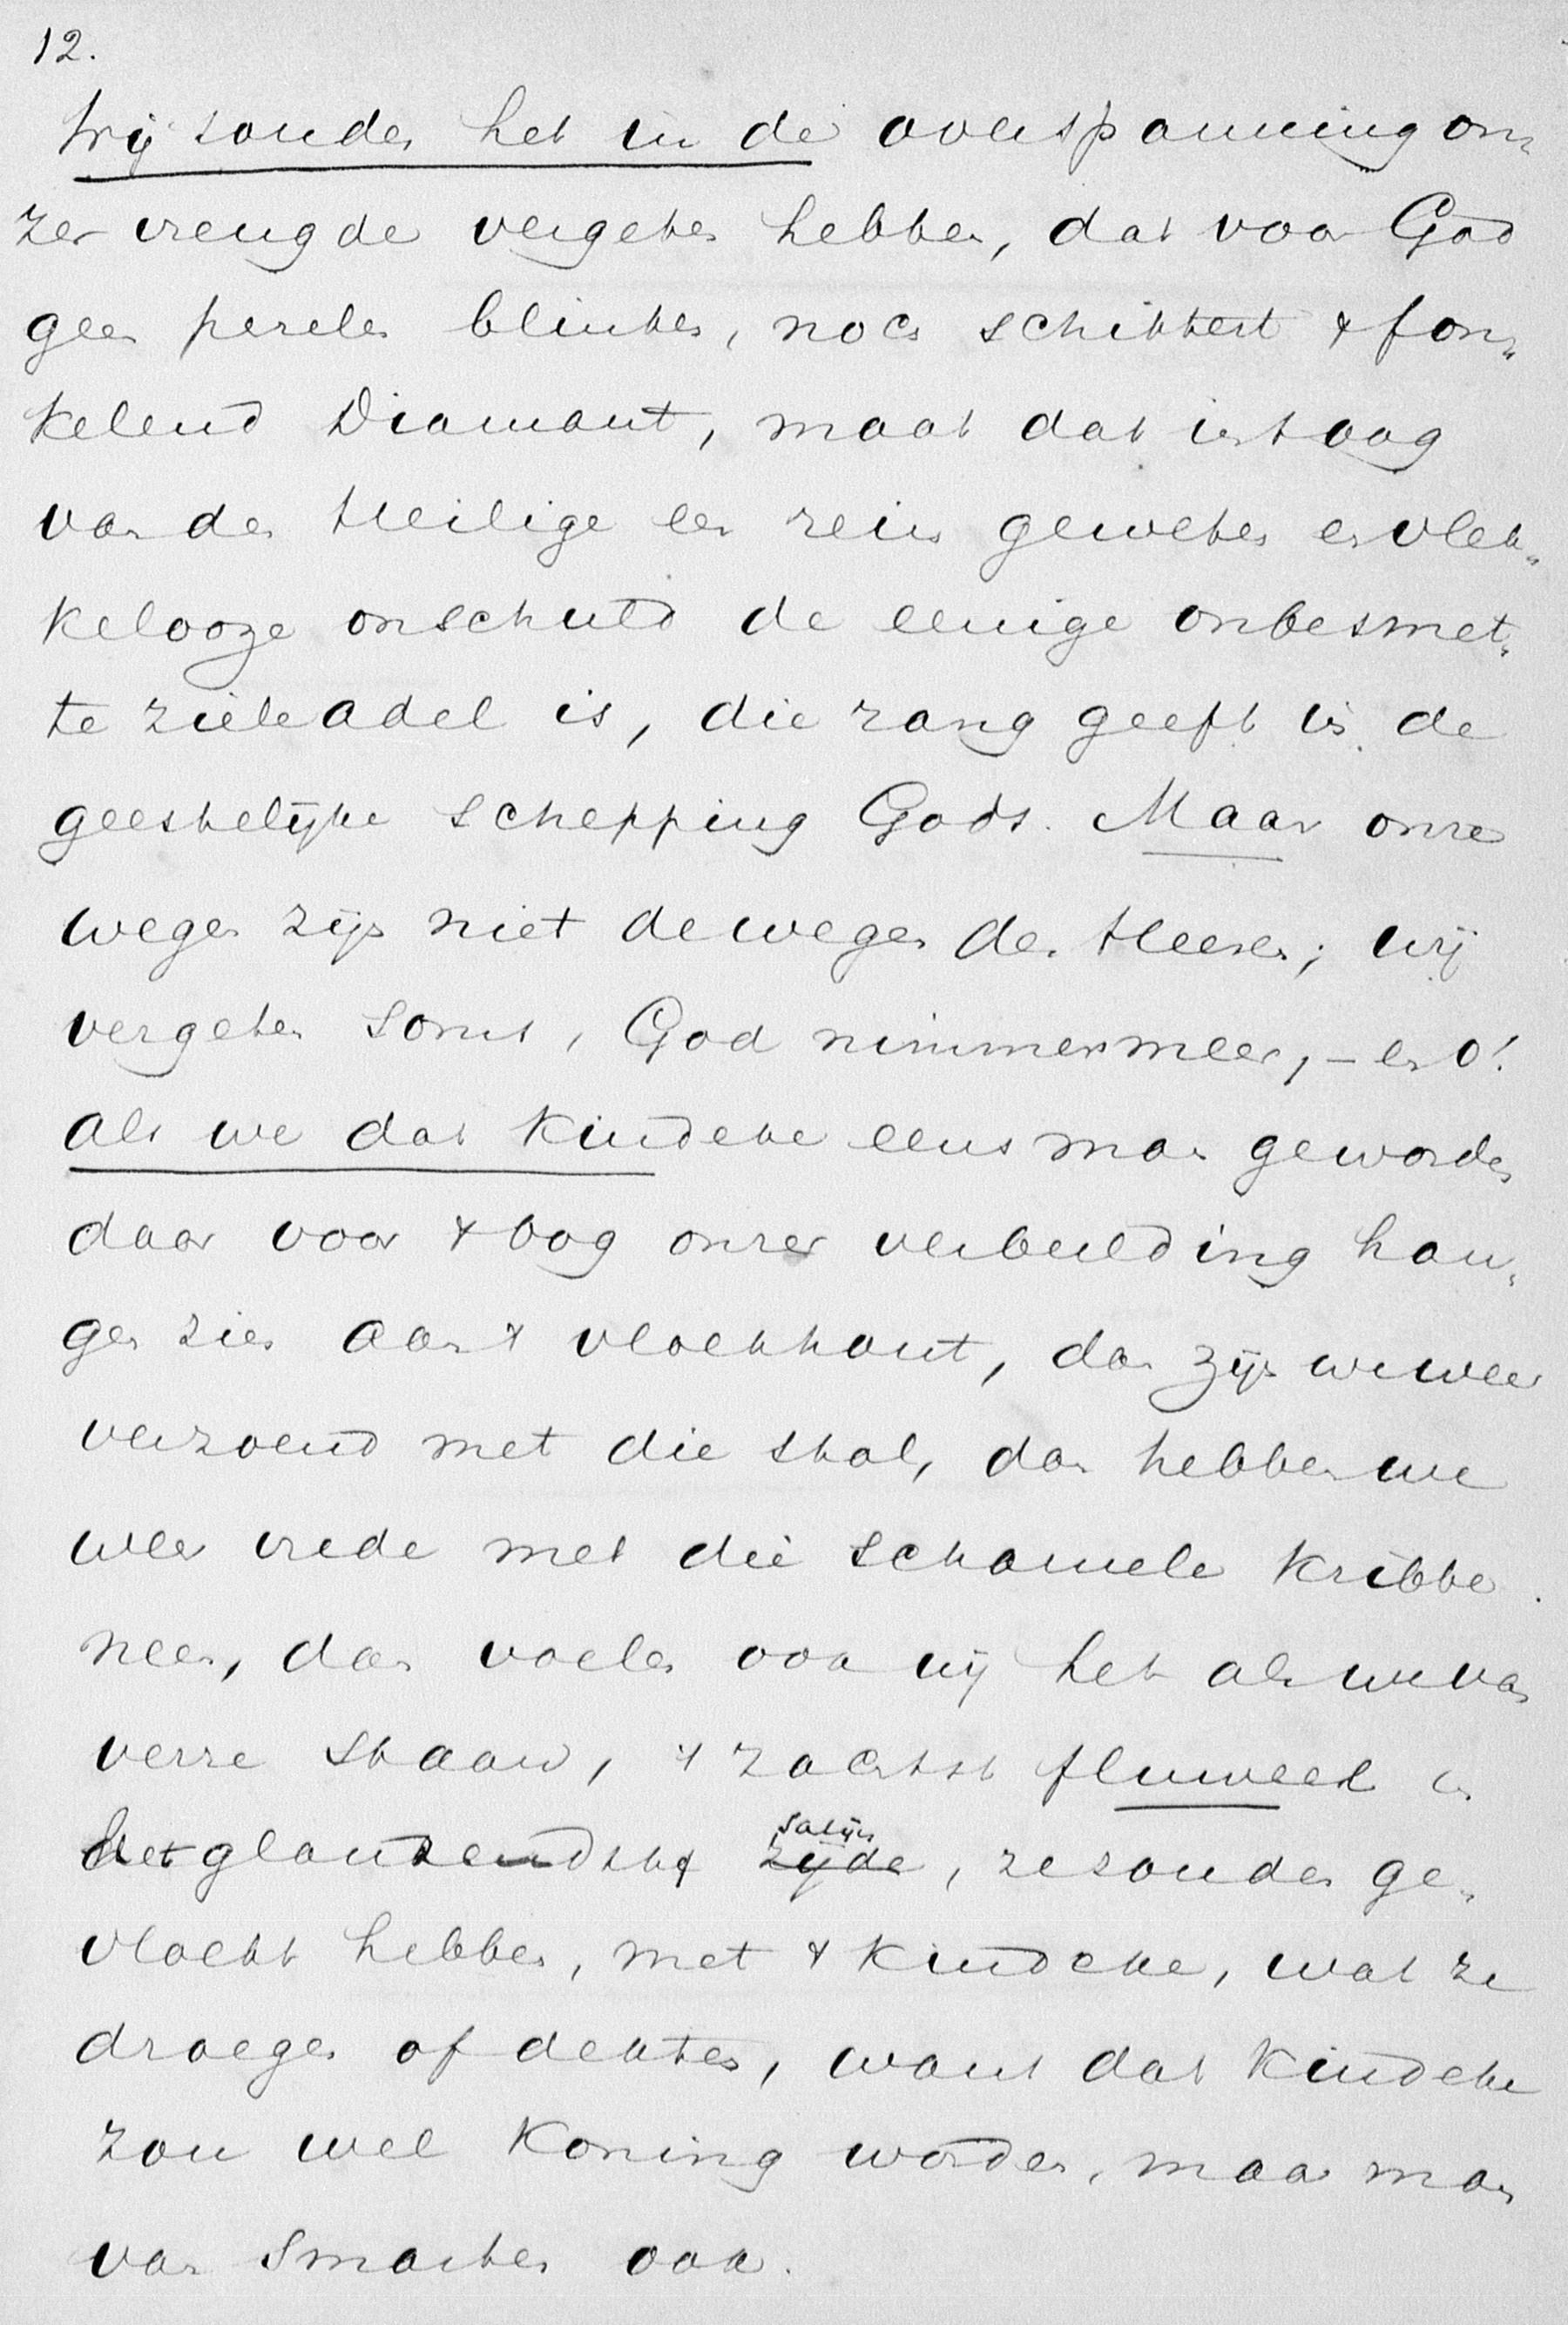 12.
Wij zouden het in de overspanning on„
zer vreugde vergeten hebben, dat voor God
geen perelen blinken, noch schittert 't fon„
kelend Diamant, maar dat in 't oog
van den Heilige een rein geweten en vlek„
kelooze onschuld de eenige onbesmet„
te zieleadel is, die rang geeft in de
geestelijke schepping Gods. Maar onze
wegen zijn niet de wegen des Heeren; wij
vergeten soms, God nimmermeer, – en o!
als we dat kindeke eens man geworden
daar voor 't oog onzer verbeelding han„
gen zien aan 't vloekhout, dan zijn we weer
verzoend met die stal, dan hebben we
weer vrede met die schamele kribbe
neen, dan voelen ook wij het als we van
verre staan, 't zachtst fluweel en
het glanzendst satijn zijde, ze zouden ge„
vloekt hebben, met 't kindeke, wat ze
droegen of dekten, want dat kindeke
zou wel Koning worden, maar man
van smarten ook.